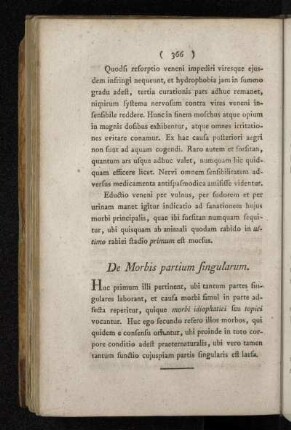 ( 366 )
Quodsi resorptio veneni impediri viresque ejus-
dem infringi nequeunt, et hydrophobia jam in summo
gradu adest, tertia curationis pars adhuc remanet,
nimirum systema nervosum contra vires veneni in-
sensibile reddere. Hunc in finem moschus atque opium
in magnis dosibus exhibentur, atque omnes irritatio-
nes evitare conamur. Ex hac causa postariori aegri
non sunt ad aquam cogendi. Raro autem et forsitan,
quantum ars usque adhuc valet, nunquam hic quid-
quam efficere licet. Nervi omnem sensibilitatem ad-
versus medicamenta antispasmodica amisisse videntur.
Eductio veneni per vulnus, per sudorem et per
urinam manet igitur indicatio ad sanationem hujus
morbi principalis, quae ibi forsitan nunquam sequi-
tur, ubi quisquam ab animali quodam rabido in ul-
timo rabiei stadio primum est morsus.
De Morbis partium singularum.
Huc primum illi pertinent, ubi tantum partes sin-
gulares laborant, et causa morbi simul in parte ad-
fecta reperitur, quique morbi idiopathici seu topici
vocantur. Huc ego secundo refero illos morbos, qui
quidem e consensu oriuntur, ubi proinde in toto cor-
pore conditio adest praeternaturalis, ubi vero tamen
tantum functio cujuspiam partis singularis est laesa.